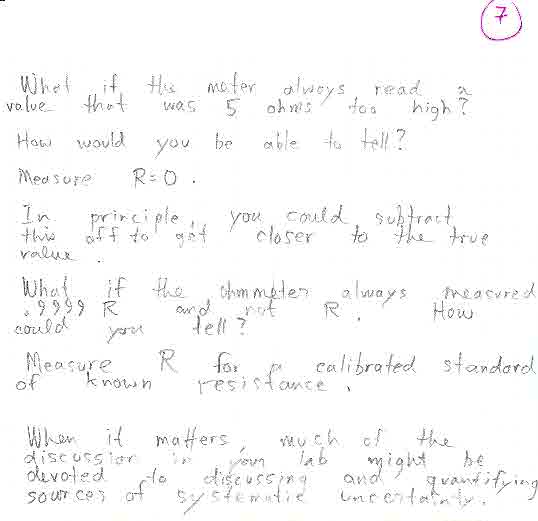 7
What if the meter always read a
value that was 5 ohms too high?
How would you be able to tell?
Measure R=0.
In principle, you could subtract
this off to get closer to the true
value.
What if the ohmmeter always measured
.9999 R and not R. How
could you tell?
Measure R for a calibrated standard
of known resistance.
When it matters, much of the
discussion in your lab might be
devoted to discussing and quantifying
sources of systematic uncertainty.